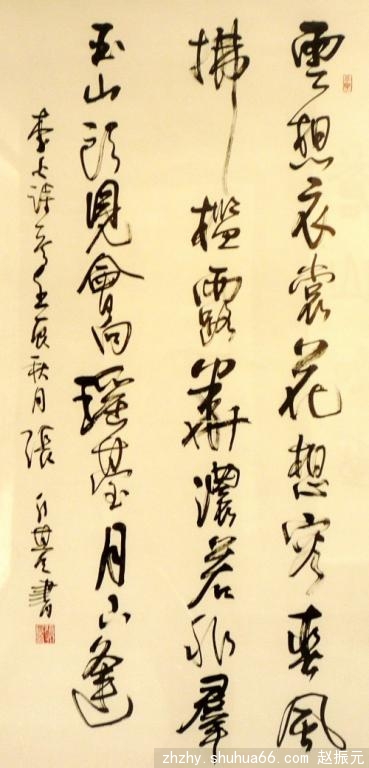 雲想衣裳花想容春風
拂檻露華濃若非羣
玉山頭見會向瑶臺月下逢
李白诗壬辰秋月張書
zhzhy.shuhua66.com 赵振元